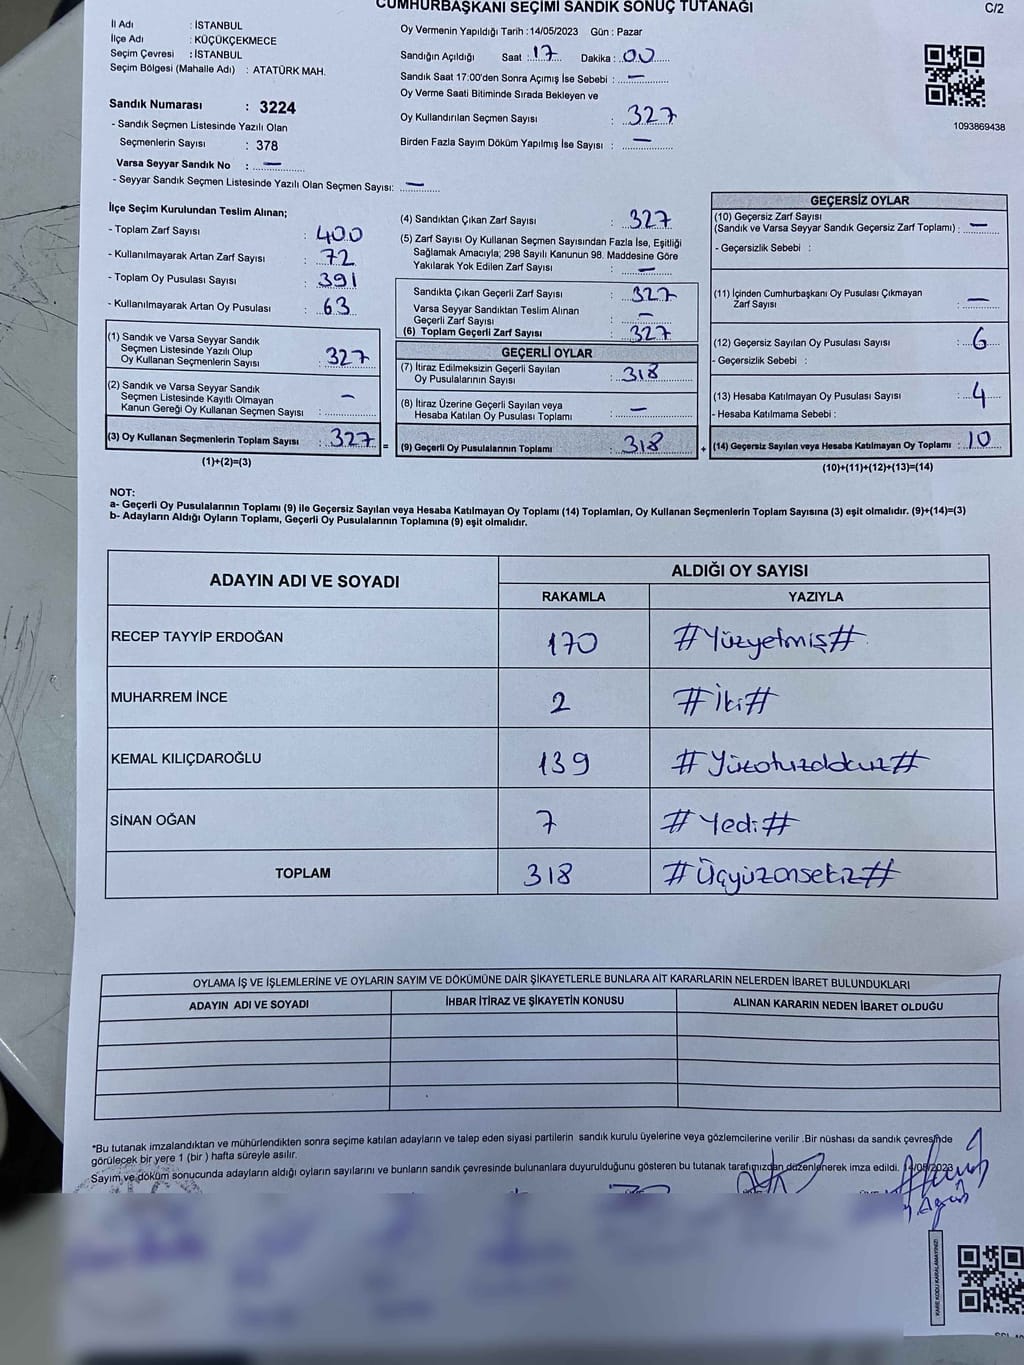 CUMHURBAŞKANI SEÇİMİ SANDIK SONUÇ TUTANAĞI
C/2
İl Adı : İSTANBUL
İlçe Adı : KÜÇÜKÇEKMECE
Seçim Çevresi : İSTANBUL
Seçim Bölgesi (Mahalle Adı) : ATATÜRK MAH.
Sandık Numarası : 3224
- Sandık Seçmen Listesinde Yazılı Olan
Seçmenlerin Sayısı : 378
Varsa Seyyar Sandık No : —
- Seyyar Sandık Seçmen Listesinde Yazılı Olan Seçmen Sayısı: —
Oy Vermenin Yapıldığı Tarih : 14/05/2023 Gün : Pazar
Sandığın Açıldığı Saat : 17 Dakika : 00
Sandık Saat 17.00'den Sonra Açımış İse Sebebi : —
Oy Verme Saati Bitiminde Sırada Bekleyen ve
Oy Kullandırılan Seçmen Sayısı : 327
Birden Fazla Sayım Döküm Yapılmış İse Sayısı : —
1093869438
İlçe Seçim Kurulundan Teslim Alınan;
- Toplam Zarf Sayısı : 400
- Kullanılmayarak Artan Zarf Sayısı : 72
- Toplam Oy Pusulası Sayısı : 391
- Kullanılmayarak Artan Oy Pusulası : 63
(1) Sandık ve Varsa Seyyar Sandık
Seçmen Listesinde Yazılı Olup
Oy Kullanan Seçmenlerin Sayısı : 327
(2) Sandık ve Varsa Seyyar Sandık
Seçmen Listesinde Kayıtlı Olmayan
Kanun Gereği Oy Kullanan Seçmen Sayısı : —
(3) Oy Kullanan Seçmenlerin Toplam Sayısı : 327 =
(1)+(2)=(3)
(4) Sandıktan Çıkan Zarf Sayısı : 327
(5) Zarf Sayısı Oy Kullanan Seçmen Sayısından Fazla İse, Eşitliği
Sağlamak Amacıyla; 298 Sayılı Kanunun 98. Maddesine Göre
Yakılarak Yok Edilen Zarf Sayısı : —
Sandıkta Çıkan Geçerli Zarf Sayısı : 327
Varsa Seyyar Sandıktan Teslim Alınan
Geçerli Zarf Sayısı : —
(6) Toplam Geçerli Zarf Sayısı : 327
GEÇERLİ OYLAR
(7) İtiraz Edilmeksizin Geçerli Sayılan
Oy Pusulalarının Sayısı : 318
(8) İtiraz Üzerine Geçerli Sayılan veya
Hesaba Katılan Oy Pusulası Toplamı : —
(9) Geçerli Oy Pusulalarının Toplamı : 318 +
GEÇERSİZ OYLAR
(10) Geçersiz Zarf Sayısı
(Sandık ve Varsa Seyyar Sandık Geçersiz Zarf Toplamı) : —
- Geçersizlik Sebebi :
(11) İçinden Cumhurbaşkanı Oy Pusulası Çıkmayan
Zarf Sayısı : —
(12) Geçersiz Sayılan Oy Pusulası Sayısı : 6
- Geçersizlik Sebebi :
(13) Hesaba Katılmayan Oy Pusulası Sayısı : 4
- Hesaba Katılmama Sebebi :
(14) Geçersiz Sayılan veya Hesaba Katılmayan Oy Toplamı : 10
(10)+(11)+(12)+(13)=(14)
NOT:
a- Geçerli Oy Pusulalarının Toplamı (9) ile Geçersiz Sayılan veya Hesaba Katılmayan Oy Toplamı (14) Toplamları, Oy Kullanan Seçmenlerin Toplam Sayısına (3) eşit olmalıdır. (9)+(14)=(3)
b- Adayların Aldığı Oyların Toplamı, Geçerli Oy Pusulalarının Toplamına (9) eşit olmalıdır.
ADAYIN ADI VE SOYADI
ALDIĞI OY SAYISI
RAKAMLA YAZIYLA
RECEP TAYYİP ERDOĞAN 170 #Yüzyetmiş#
MUHARREM İNCE 2 #İki#
KEMAL KILIÇDAROĞLU 139 #Yüzotuzdokuz#
SİNAN OĞAN 7 #Yedi#
TOPLAM 318 #Üçyüzonsekiz#
OYLAMA İŞ VE İŞLEMLERİNE VE OYLARIN SAYIM VE DÖKÜMÜNE DAİR ŞİKAYETLERLE BUNLARA AİT KARARLARIN NELERDEN İBARET BULUNDUKLARI
ADAYIN ADI VE SOYADI İHBAR İTİRAZ VE ŞİKAYETİN KONUSU ALINAN KARARIN NEDEN İBARET OLDUĞU
*Bu tutanak imzalandıktan ve mühürlendikten sonra seçime katılan adayların ve talep eden siyasi partilerin sandık kurulu üyelerine veya gözlemcilerine verilir .Bir nüshası da sandık çevresinde
görülecek bir yere 1 (bir ) hafta süreyle asılır.
Sayım ve döküm sonucunda adayların aldığı oyların sayılarını ve bunların sandık çevresinde bulunanlara duyurulduğunu gösteren bu tutanak tarafımızdan düzenlenerek imza edildi. 14/05/2023
KARE KODU KARALAMAYINIZ!